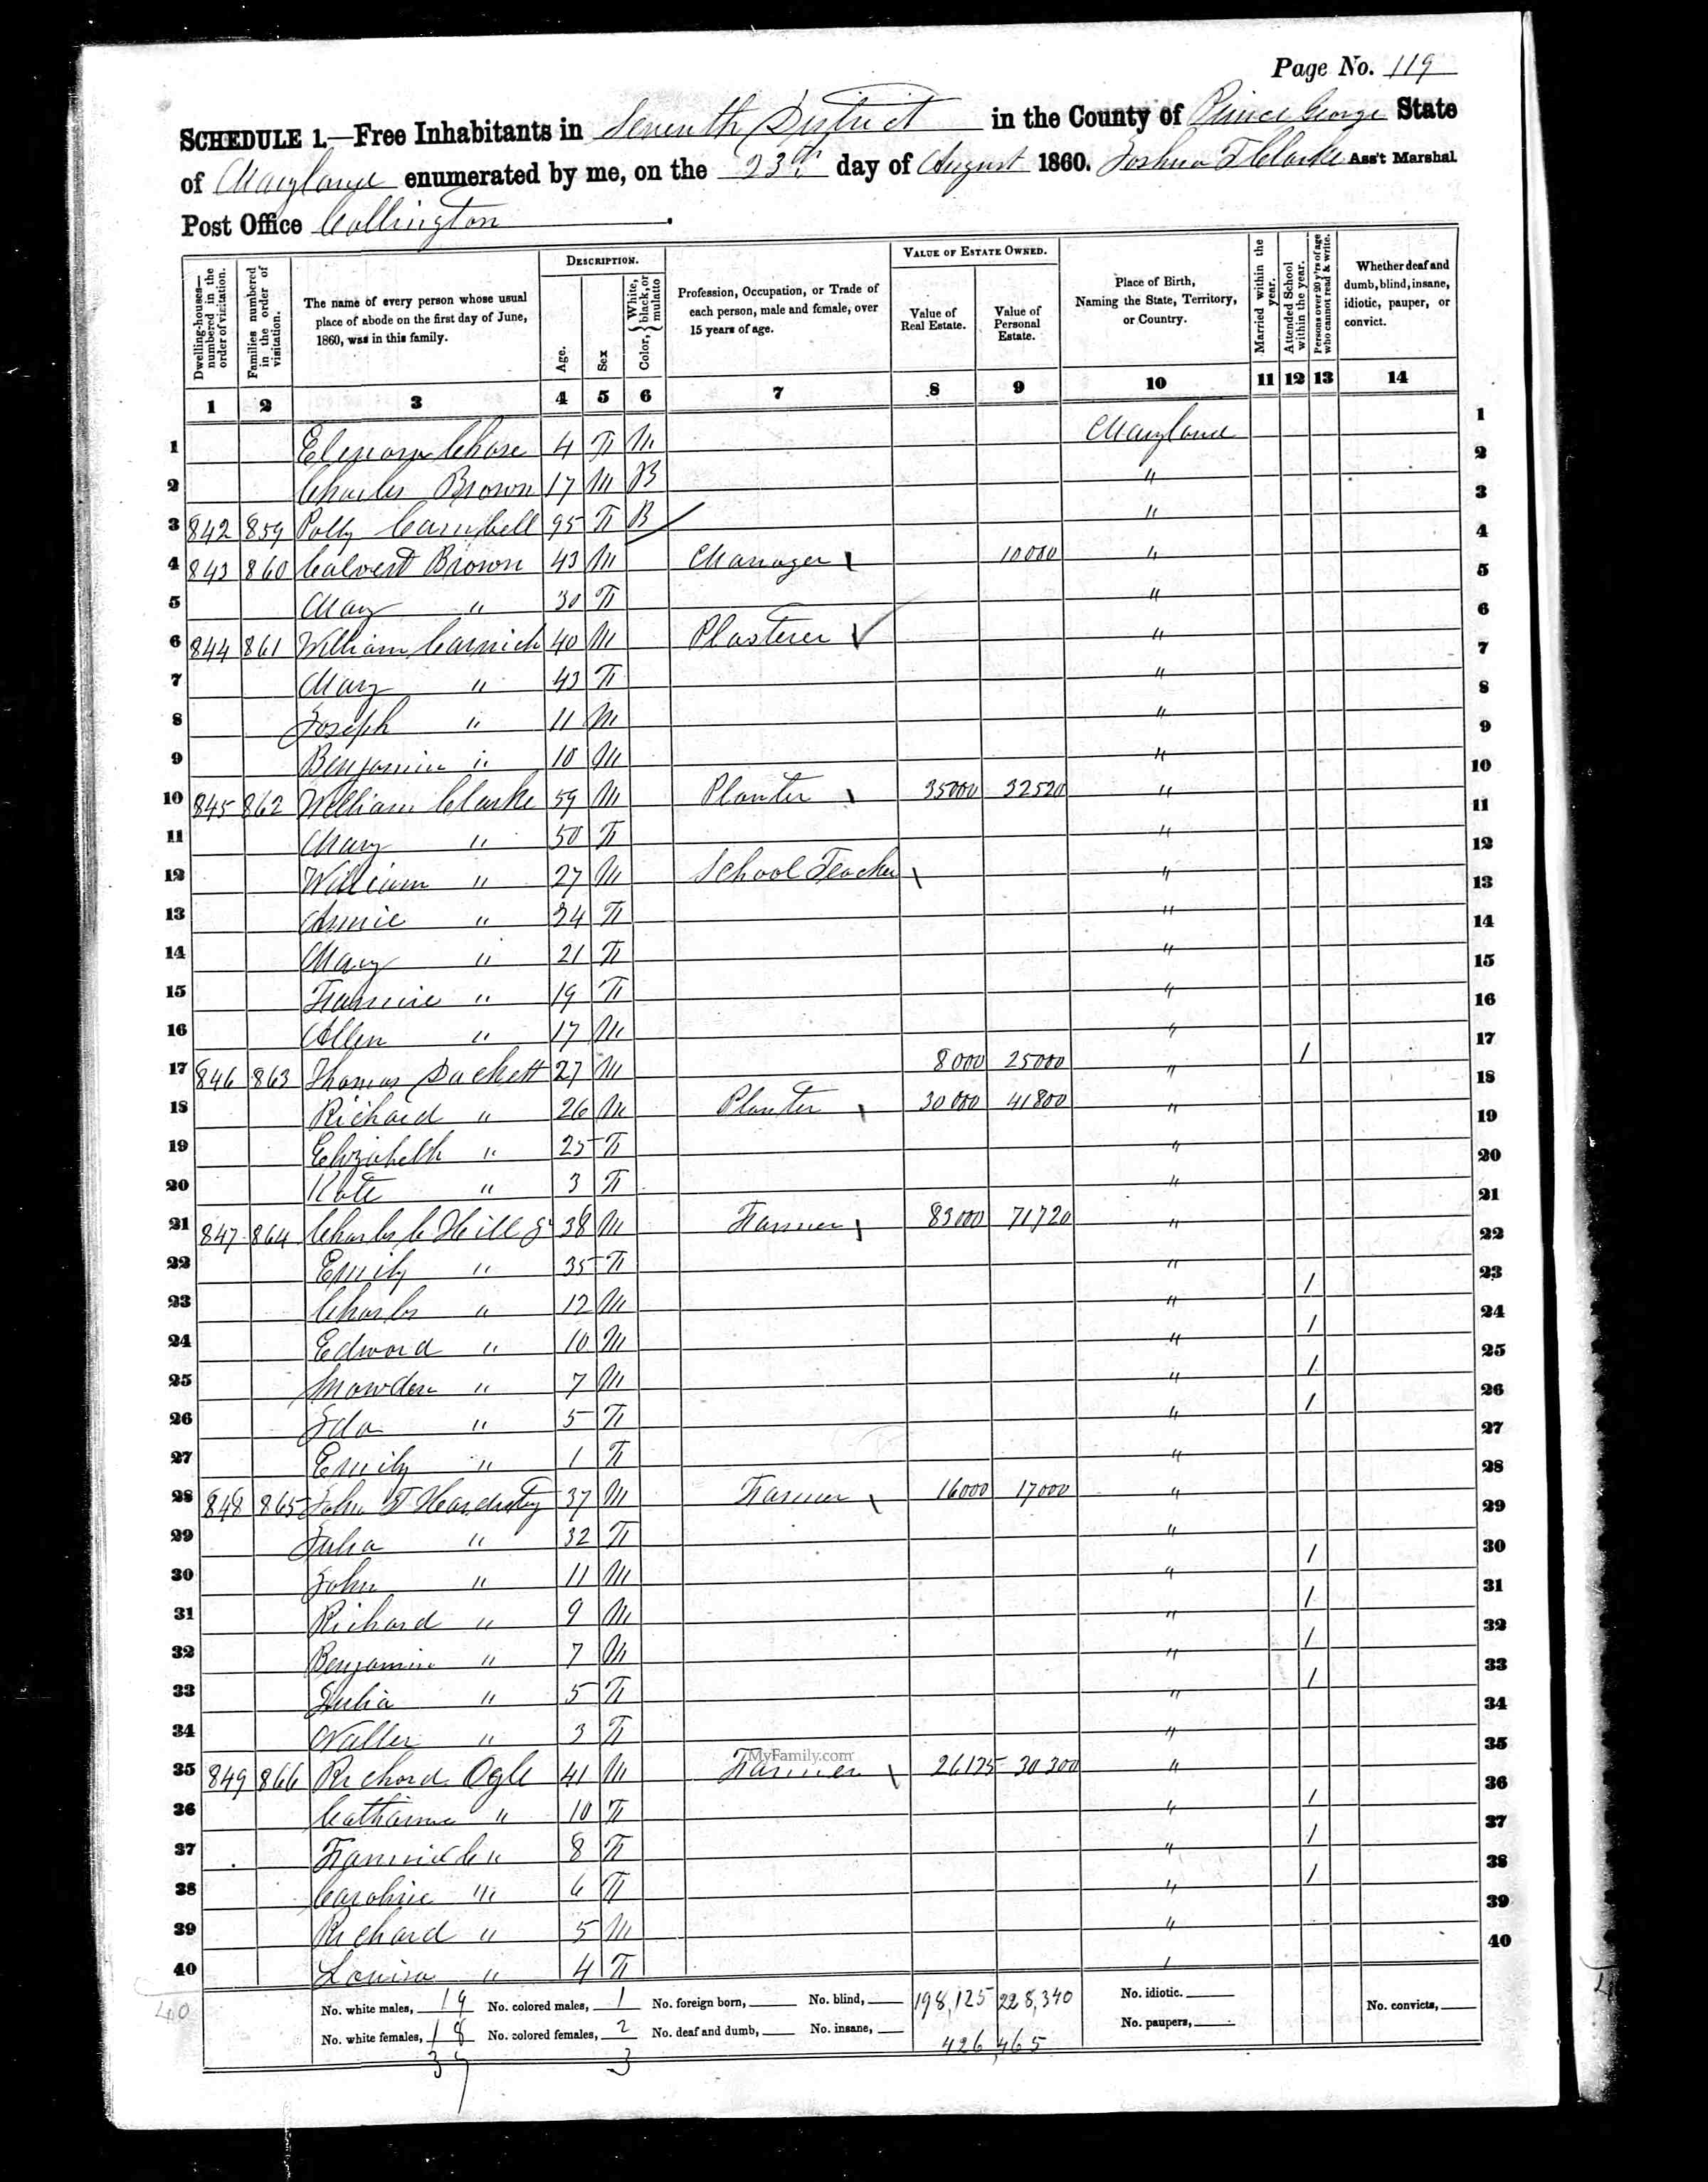 Page No. 119
SCHEDULE 1.—Free Inhabitants in Seventh District in the County of Prince George State
of Maryland enumerated by me, on the 23th day of August 1860. Joshua T Clarke Ass't Marshal
Post Office Collington.
Dwelling-houses—numbered in the order of visitation.
Families numbered in the order of visitation.
The name of every person whose usual place of abode on the first day of June, 1860, was in this family.
DESCRIPTION.
Age.
Sex
Color, { White, black, or mulatto
Profession, Occupation, or Trade of each person, male and female, over 15 years of age.
VALUE OF ESTATE OWNED.
Value of Real Estate.
Value of Personal Estate.
Place of Birth, Naming the State, Territory, or Country.
Married within the year.
Attended School within the year.
Persons over 20 y'rs of age who cannot read & write.
Whether deaf and dumb, blind, insane, idiotic, pauper, or convict.
1 2 3 4 5 6 7 8 9 10 11 12 13 14
1 Elenora Chase 4 F M Maryland 1
2 Charles Brown 17 M B " 2
3 842 859 Polly Campbell 95 F B " 3
4 843 860 Calvert Brown 43 M Manager 10000 " 4
5 Mary " 30 F " 5
6 844 861 William Carrick 40 M Plasterer " 6
7 Mary " 43 F " 7
8 Joseph " 11 M " 8
9 Benjamin " 10 M " 9
10 845 862 William Clarke 59 M Planter 35000 32520 " 10
11 Mary " 50 F " 11
12 William " 27 M School Teacher " 12
13 Annie " 24 F " 13
14 Mary " 21 F " 14
15 Fannie " 19 F " 15
16 Allen " 17 M " 16
17 846 863 Thomas Duckett 27 M 8000 25000 " 1 17
18 Richard " 26 M Planter 30000 41800 " 18
19 Elizabeth " 25 F " 19
20 Kate " 3 F " 20
21 847 864 Charles C Hill Jr 38 M Farmer 83000 71720 " 21
22 Emily " 35 F " 22
23 Charles " 12 M " 1 23
24 Edward " 10 M " 1 24
25 Snowden " 7 M " 1 25
26 Ida " 5 F " 1 26
27 Emily " 1 F " 27
28 848 865 John T Hardesty 37 M Farmer 16000 17000 " 28
29 Julia " 32 F " 29
30 John " 11 M " 1 30
31 Richard " 9 M " 1 31
32 Benjamin " 7 M " 1 32
33 Julia " 5 F " 1 33
34 Walter " 3 F " 34
35 849 866 Richard Ogle 41 M Farmer 26125 30300 " 35
36 Catharine " 10 F " 1 36
37 Fannie C " 8 F " 1 37
38 Caroline " 6 F " 1 38
39 Richard " 5 M " 39
40 Louisa " 4 F 40
MyFamily.com
40
No. white males, 19 No. colored males, 1 No. foreign born, No. blind, 198,125 228,340 No. idiotic. No. convicts,
No. white females, 18 No. colored females, 2 No. deaf and dumb, No. insane, No. paupers,
37 3 426,465